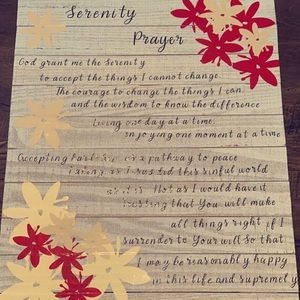 Serenity
Prayer
God grant me the Serenity
to accept the things I cannot change.
The courage to change the things I can.
and the wisdom to know the difference
Living one day at a time.
Enjoying one moment at a time
Accepting pathway to peace
this sinful world
as it is. Not as I would have it
that You will make
all things right if I
surrender to Your will so that
I may be reasonably happy
in this life and supremely